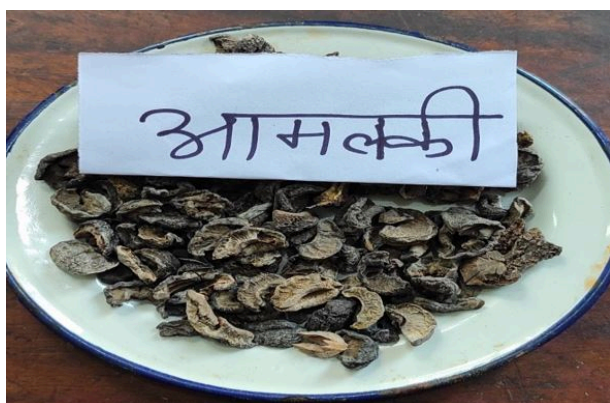 आमलकी